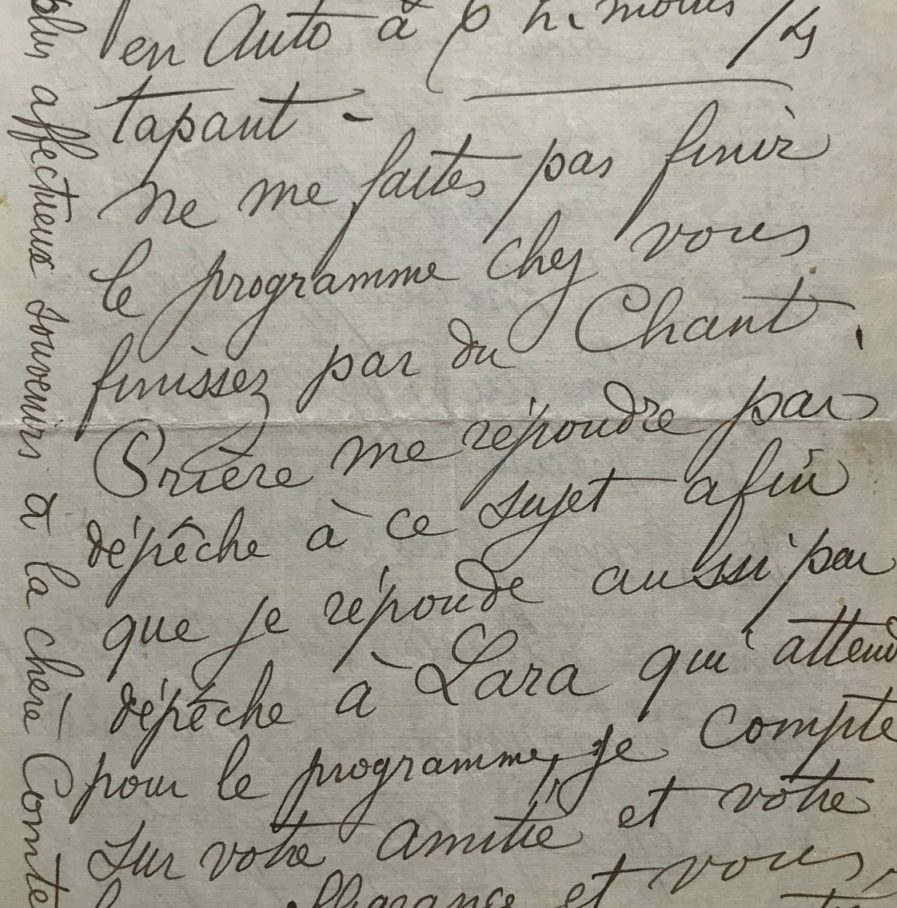 en Auto à 6 h. moins 1/4
tapant -
ne me faites pas finir
le programme chez vous
finissez par du Chant.
Prière me répondre par
dépêche à ce sujet afin
que je réponde aussi par
dépêche à Lara qui attend
pour le programme, je compte
sur votre amitié et votre
et vous
plus affectieux souvenirs à la chère Comte